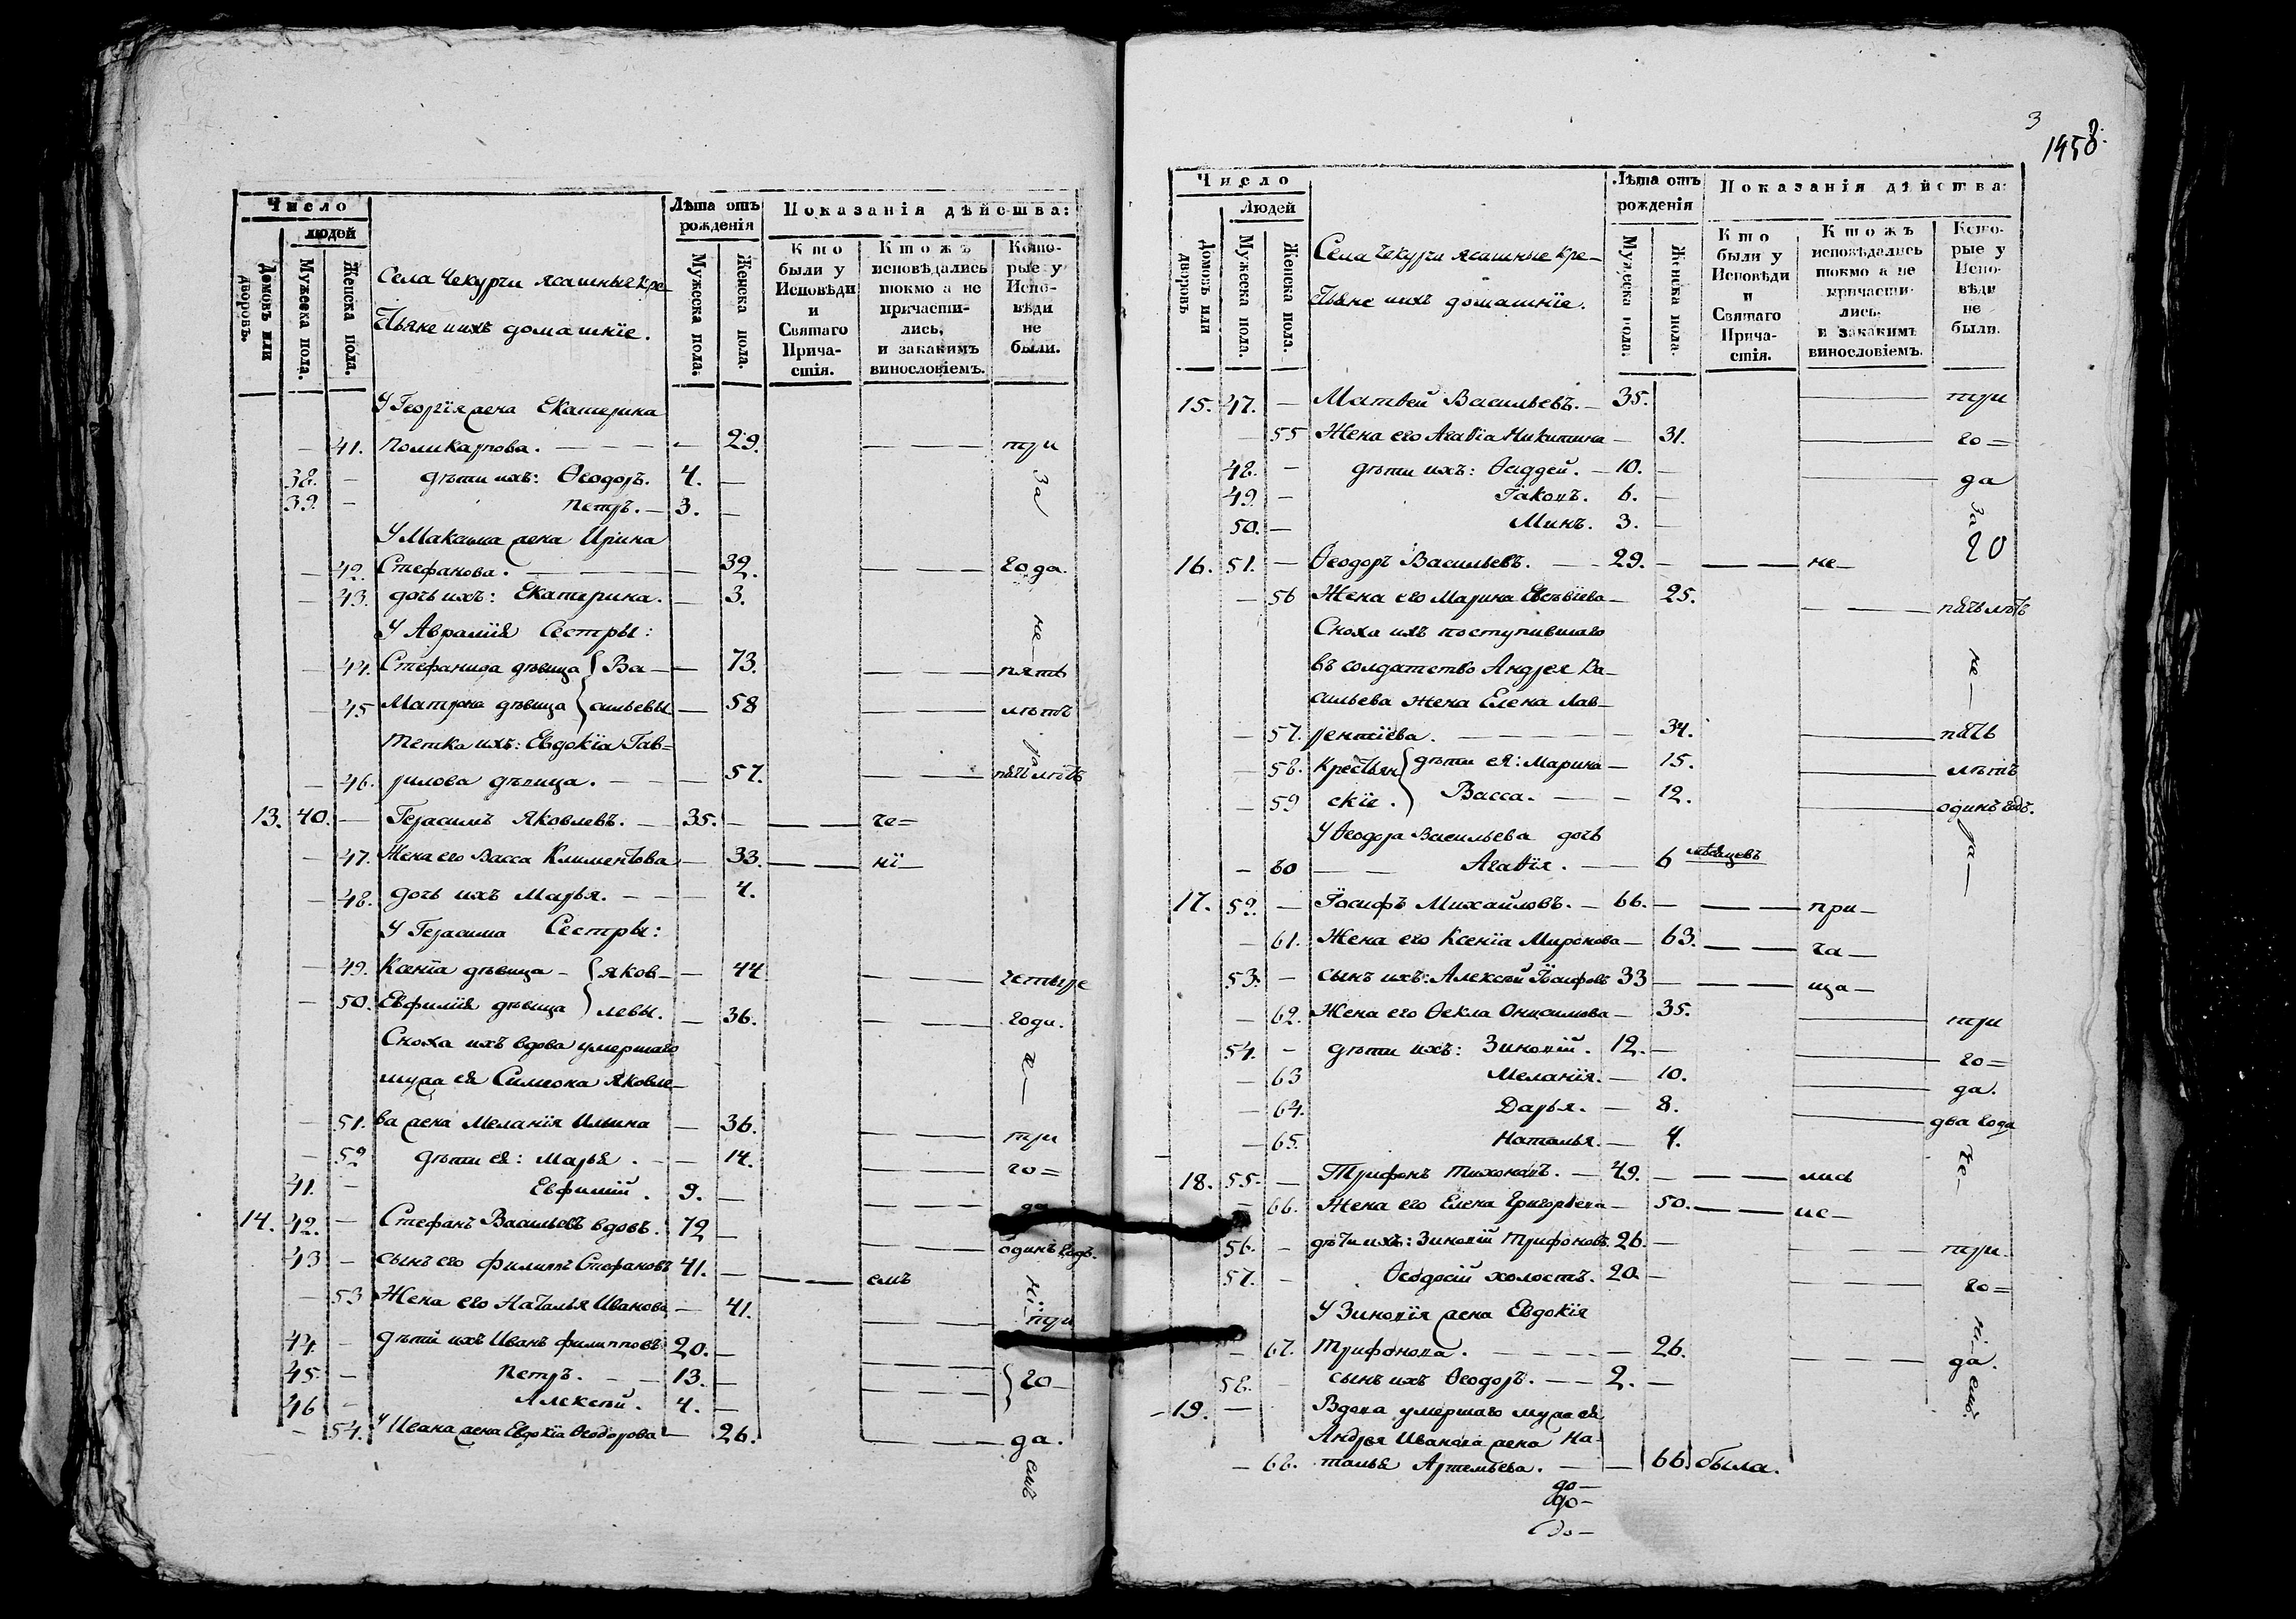 Число
людей
Домовъ или дворовъ.
Мужеска пола.
Женска пола.
Села Чекурчи ясашные кре-
стьяне и ихъ домашнїе.
Лѣта отъ рожденія
Мужеска пола.
Женска пола.
Показанія дѣйства:
Кто были у Исповѣди и Святаго Причастія.
Ктожъ исповѣдались токмо а не причастились, и закакимъ винословіемъ.
Которые у Исповѣди не были.
У Георгїя жена Екатерина
41. Поликарпова. — 29. три
38. — дѣти ихъ: Ѳеодоръ. 4. — за
39. — Петръ. — 3. —
У Максима жена Ирина
42. Стефанова. — 32. года.
43. дочь ихъ: Екатерина. — 3.
У Аврамїя Сестры: не—
44. Стефанида дѣвица Ва- — 73. пять
45 Матрона дѣвица сильевы — 58 лѣтъ
Тетка ихъ: Евдокїа Гав=
46. рилова дѣвица. — 57. пять лѣтъ
13. 40. — Герасимъ Яковлевъ. — 35. — че=
47. Жена его Васса Климентова — 33. нї—
48. дочь ихъ Марья. — 4.
У Герасима Сестры:
49. Ксенїа дѣвица - яков- — 44 четыре
50. Евфимїя дѣвица левы. — 36. годи.
Сноха ихъ вдова умершаго
мужа ея Симеона Яковле-
51. ва жена Меланїя Ильина — 36. три
52 дѣти ея: Марья. — 14. го=
41. — Евфимїй. 9. — да
14. 42. — Стефанъ Васильевъ вдовъ. 72 — одинъ годъ.
43 — сынъ его Филиппъ Стефановъ 41. — емъ
53 Жена его Наталья Иванова — 41. нї— три
44. — дѣти ихъ Иванъ Филипповъ 20. —
45. — Петръ. — 13. — го—
46 — Алексѣй. 4. —
54. У Ивана жена Евдокїа Ѳеодорова — 26. да.
емъ
3
1458.
Число
Людей
Домовъ или дворовъ
Мужеска пола.
Женска пола.
Села Чекурчи ясашные кре-
стьяне и ихъ домашнїе.
Лѣта отъ рожденія
Мужеска пола.
Женска пола.
Показанія дѣйства:
Кто были у Исповѣди и Святаго Причастія.
Ктожъ исповѣдались токмо а не причастились, и закакимъ винословіемъ.
Которые у Исповѣди не были.
15. 47. — Матвей Васильевъ. — 35. три
55 Жена его Агаѳїа Никитина — 31. го=
48. — дѣти ихъ: Ѳаддей. — 10. — да
49. — Їаковъ. 6. — за
50. — Минъ. 3. — 20
16. 51. — Ѳеодоръ Васильевъ. — 29. — не—
56 Жена его Марина Евсѣвїева — 25. пять лѣтъ
Сноха ихъ поступившаго
въ солдатство Андрея Ва- не—
сильева жена Елена Лав-
57. рентїева. — 34. пять
58. Крестьян дѣти ея: Марина — 15. лѣтъ
59 скїе. Васса. — 12. одинъ годъ.
У Ѳеодора Васильева дочь
60 — Агаѳїя. — 6 мѣсяцевъ
17. 52. — Їосифъ Михайловъ. — 66. — при—
61. Жена его Ксенїа Миронова — 63. ча—
53. — сынъ ихъ: Алексѣй Їосифовъ 33 — ща—
62. Жена его Ѳекла Онисимова — 35. три
54. — дѣти ихъ: Зиновїй. 12. — го=
63 Меланїя. — 10. да.
64. Дарья. — 8. два года
65. Наталья. — 4. че—
18. 55. — Трифонъ Тихоновъ. — 49. — лись
66. Жена его Елена Григорьева — 50. ис—
56. — дѣти ихъ: Зиновїй Трифоновъ. 26. — три.
57. — Ѳеодосїй холостъ. 20. — го=
У Зиновїя жена Евдокїя нї—
67. Трифонова. — 26. да.
58. — сынъ ихъ Ѳеодоръ. — 2. — емъ.
19. — Вдова умершаго мужа ея
Андрея Иванова жена На-
68. талья Артемьева. — 66. была.
до—
до—
до—